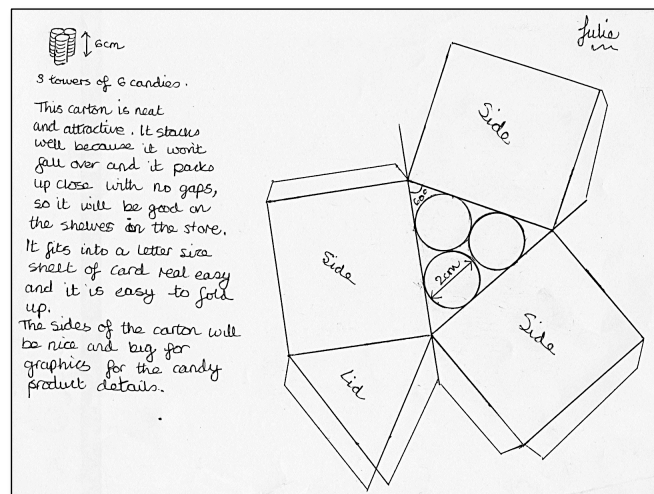 Julie
6cm
3 towers of 6 candies.
This carton is neat
and attractive. It stacks
well because it won't
fall over and it packs
up close with no gaps,
so it will be good on
the shelves in the store.
It fits into a letter size
sheet of card real easy
and it is easy to fold
up.
The sides of the carton will
be nice and big for
graphics for the candy
product details.
Side
60°
2cm
Side
Side
Lid